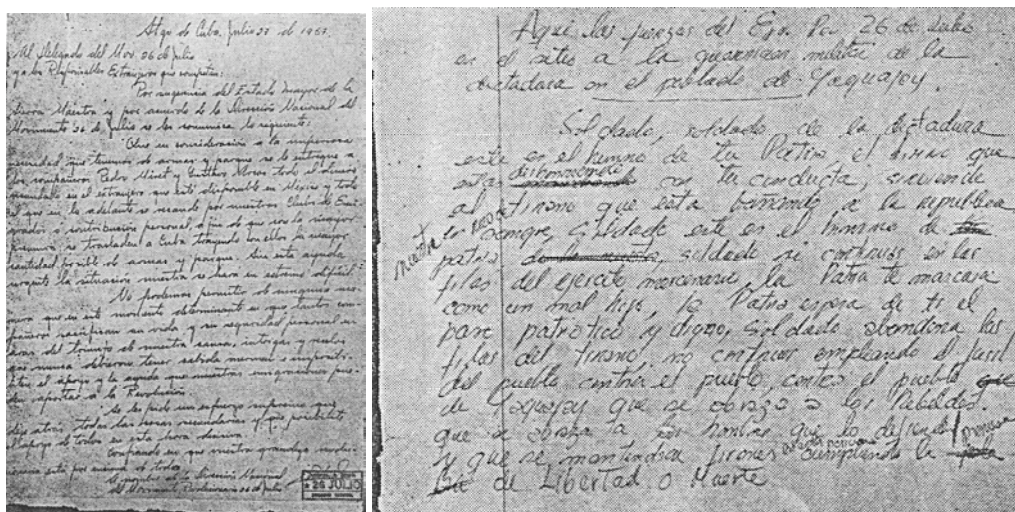 Stgo de Cuba, Julio 27 de 1957.
Al Delegado del Mov. 26 de Julio
y a los Responsables Extranjeros que competen:
Por sugerencia del Estado Mayor de la
Sierra Maestra y por acuerdo de la Dirección Nacional del
Movimiento 26 de Julio se les comunica lo siguiente:
Que en consideración a la imperiosa
necesidad que tenemos de armas y parque se le entregue a
los compañeros Pedro Miret y Gustavo Arcos todo el dinero
en el extranjero que esté disponible en México y todo
el que en lo adelante se recaude por nuestros Clubs de Emi-
grados o contribución personal, a fin de que con la mayor
se trasladen a Cuba trayendo con ellos la mayor
cantidad posible de armas y parque. Sin esta ayuda
urgente la situación nuestra se hará en extremo difícil.
No podemos permitir de ninguna ma-
nera que en este momento determinante en que tantos com-
pañeros sacrifican su vida y su seguridad personal en
aras del triunfo de nuestra causa, intrigas y celos
que nunca debieron tener cabida
el apoyo y la ayuda que nuestros emigrados pue-
den aportar a la Revolución.
Se les pide un esfuerzo supremo que
deje atrás todas las cosas secundarias y que posibilite
el apoyo de todos en esta hora decisiva
Confiando en que nuestra grandeza revolu-
cionaria esté por encima de todo
Dirección Nacional
del Movimiento Revolucionario 26 de Julio
26 JULIO
Aquí las fuerzas del Ejo. Rev 26 de Julio
en el sitio a la guarnicion militar de la
dictadura en el poblado de Yaguajay.
Soldado, soldado de la dictadura
este es el himno de tu Patria el himno que
estas deshonrando con tu conducta, sirviendo
al tirano que esta bañando a la republica
en sangre, soldado este es el himno de
nuestra
patria soldado si continuas en las
filas del ejercito mercenario, la Patria te marcara
como un mal hijo, la Patria espera de ti el
paso patriotico y digno, Soldado abandona las
filas del tirano, no continues empleando el fusil
del pueblo contra el pueblo, contra el pueblo que
de Yaguajay que se abrazo a los Rebeldes.
que se abraza a los hombres que lo defienden
y que se mantendran firmes cumpliendo la promesa
de Libertad o Muerte